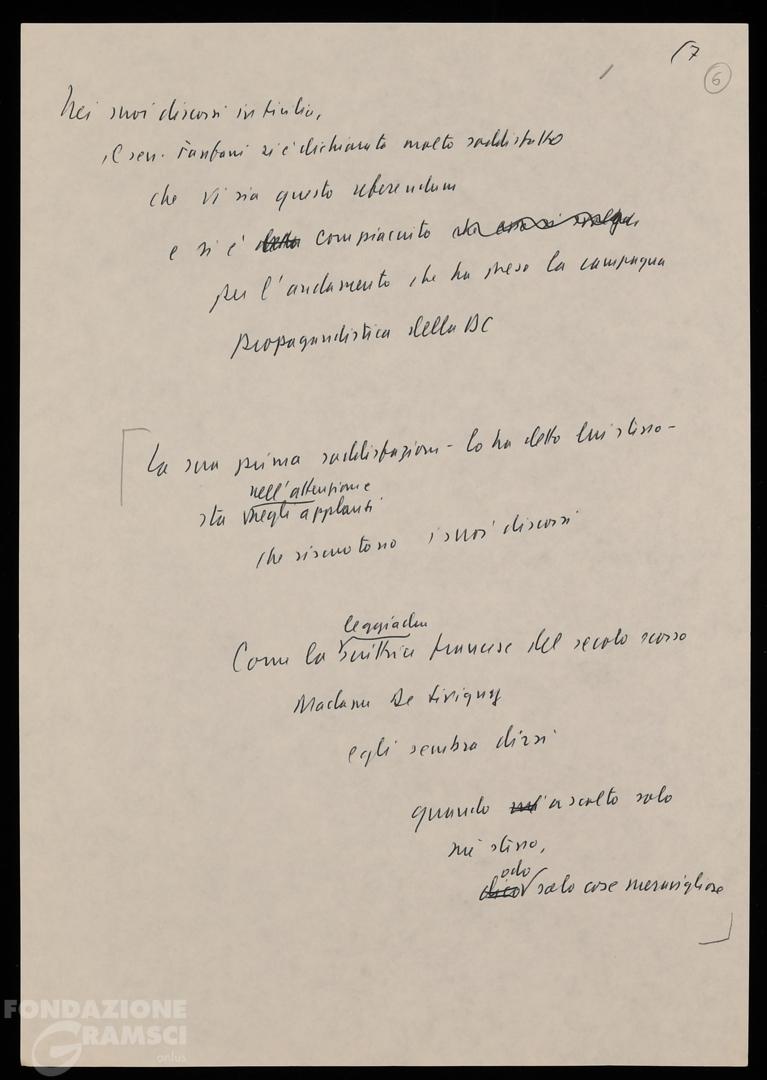 7
6
Nei suoi discorsi in Sicilia,
il sen. Fanfani si è dichiarato molto soddisfatto
che vi sia questo referendum
e si è compiaciuto
per l'andamento che ha preso la campagna
propagandistica della DC
La sua prima soddisfazione - lo ha detto lui stesso -
nell'attenzione e
sta negli applausi
che riscuotono i suoi discorsi
leggiadra
Come la scrittrice francese del secolo scorso
Madame De
egli sembra dirsi
quando ascolto solo
me stesso,
odo
dico solo cose meravigliose
FONDAZIONE
GRAMSCI
onlus